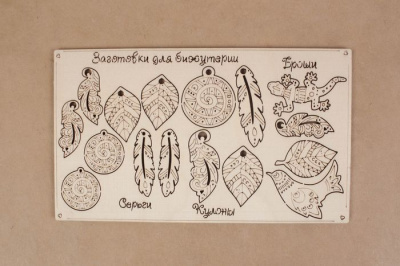 Заготовки для бижутерии
Броши
Серьги
Кулоны